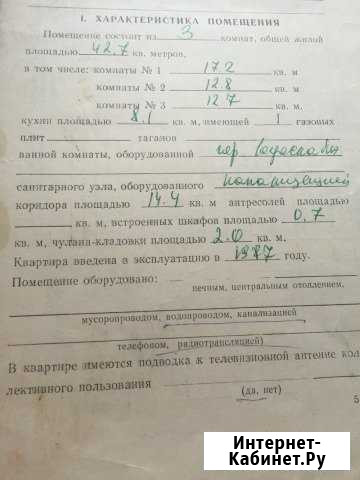 I. ХАРАКТЕРИСТИКА ПОМЕЩЕНИЯ
Помещение состоит из 3 комнат, общей жилой
площадью 42.7 кв. метров,
в том числе: комнаты № 1 17.2 кв. м
комнаты № 2 12.8 кв. м
комнаты № 3 12.7 кв. м.
кухни площадью 8.1 кв. м, имеющей 1 газовых
плит таганов
ванной комнаты, оборудованной
санитарного узла, оборудованного канализацией
коридора площадью 14.4 кв. м антресолей площадью
кв. м, встроенных шкафов площадью 0.7
кв. м, чулана-кладовки площадью 2.0 кв. м.
Квартира введена в эксплуатацию в 1987 году.
Помещение оборудовано:
печным, центральным отоплением,
мусоропроводом, водопроводом, канализацией
телефовом, радиотрансляцией)
В квартире имеются подводка к телевизионной антенне кол
лективного пользования
(да, нет)
5
Интернет-
Кабинет.Ру